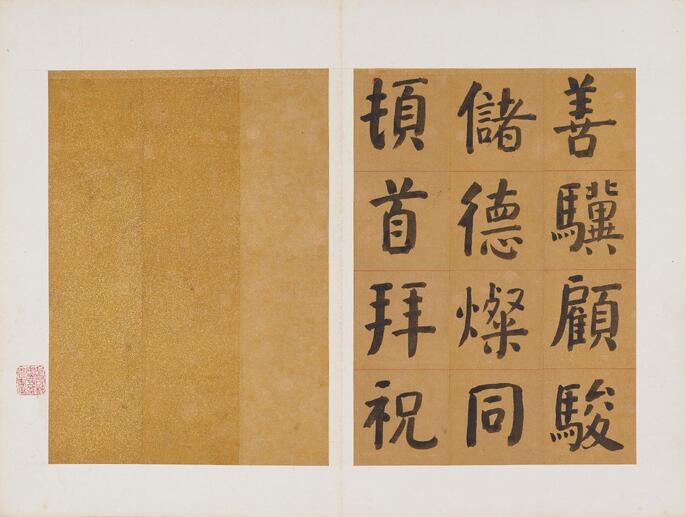 善驥顧駿
儲德燦同
頓首拜祝